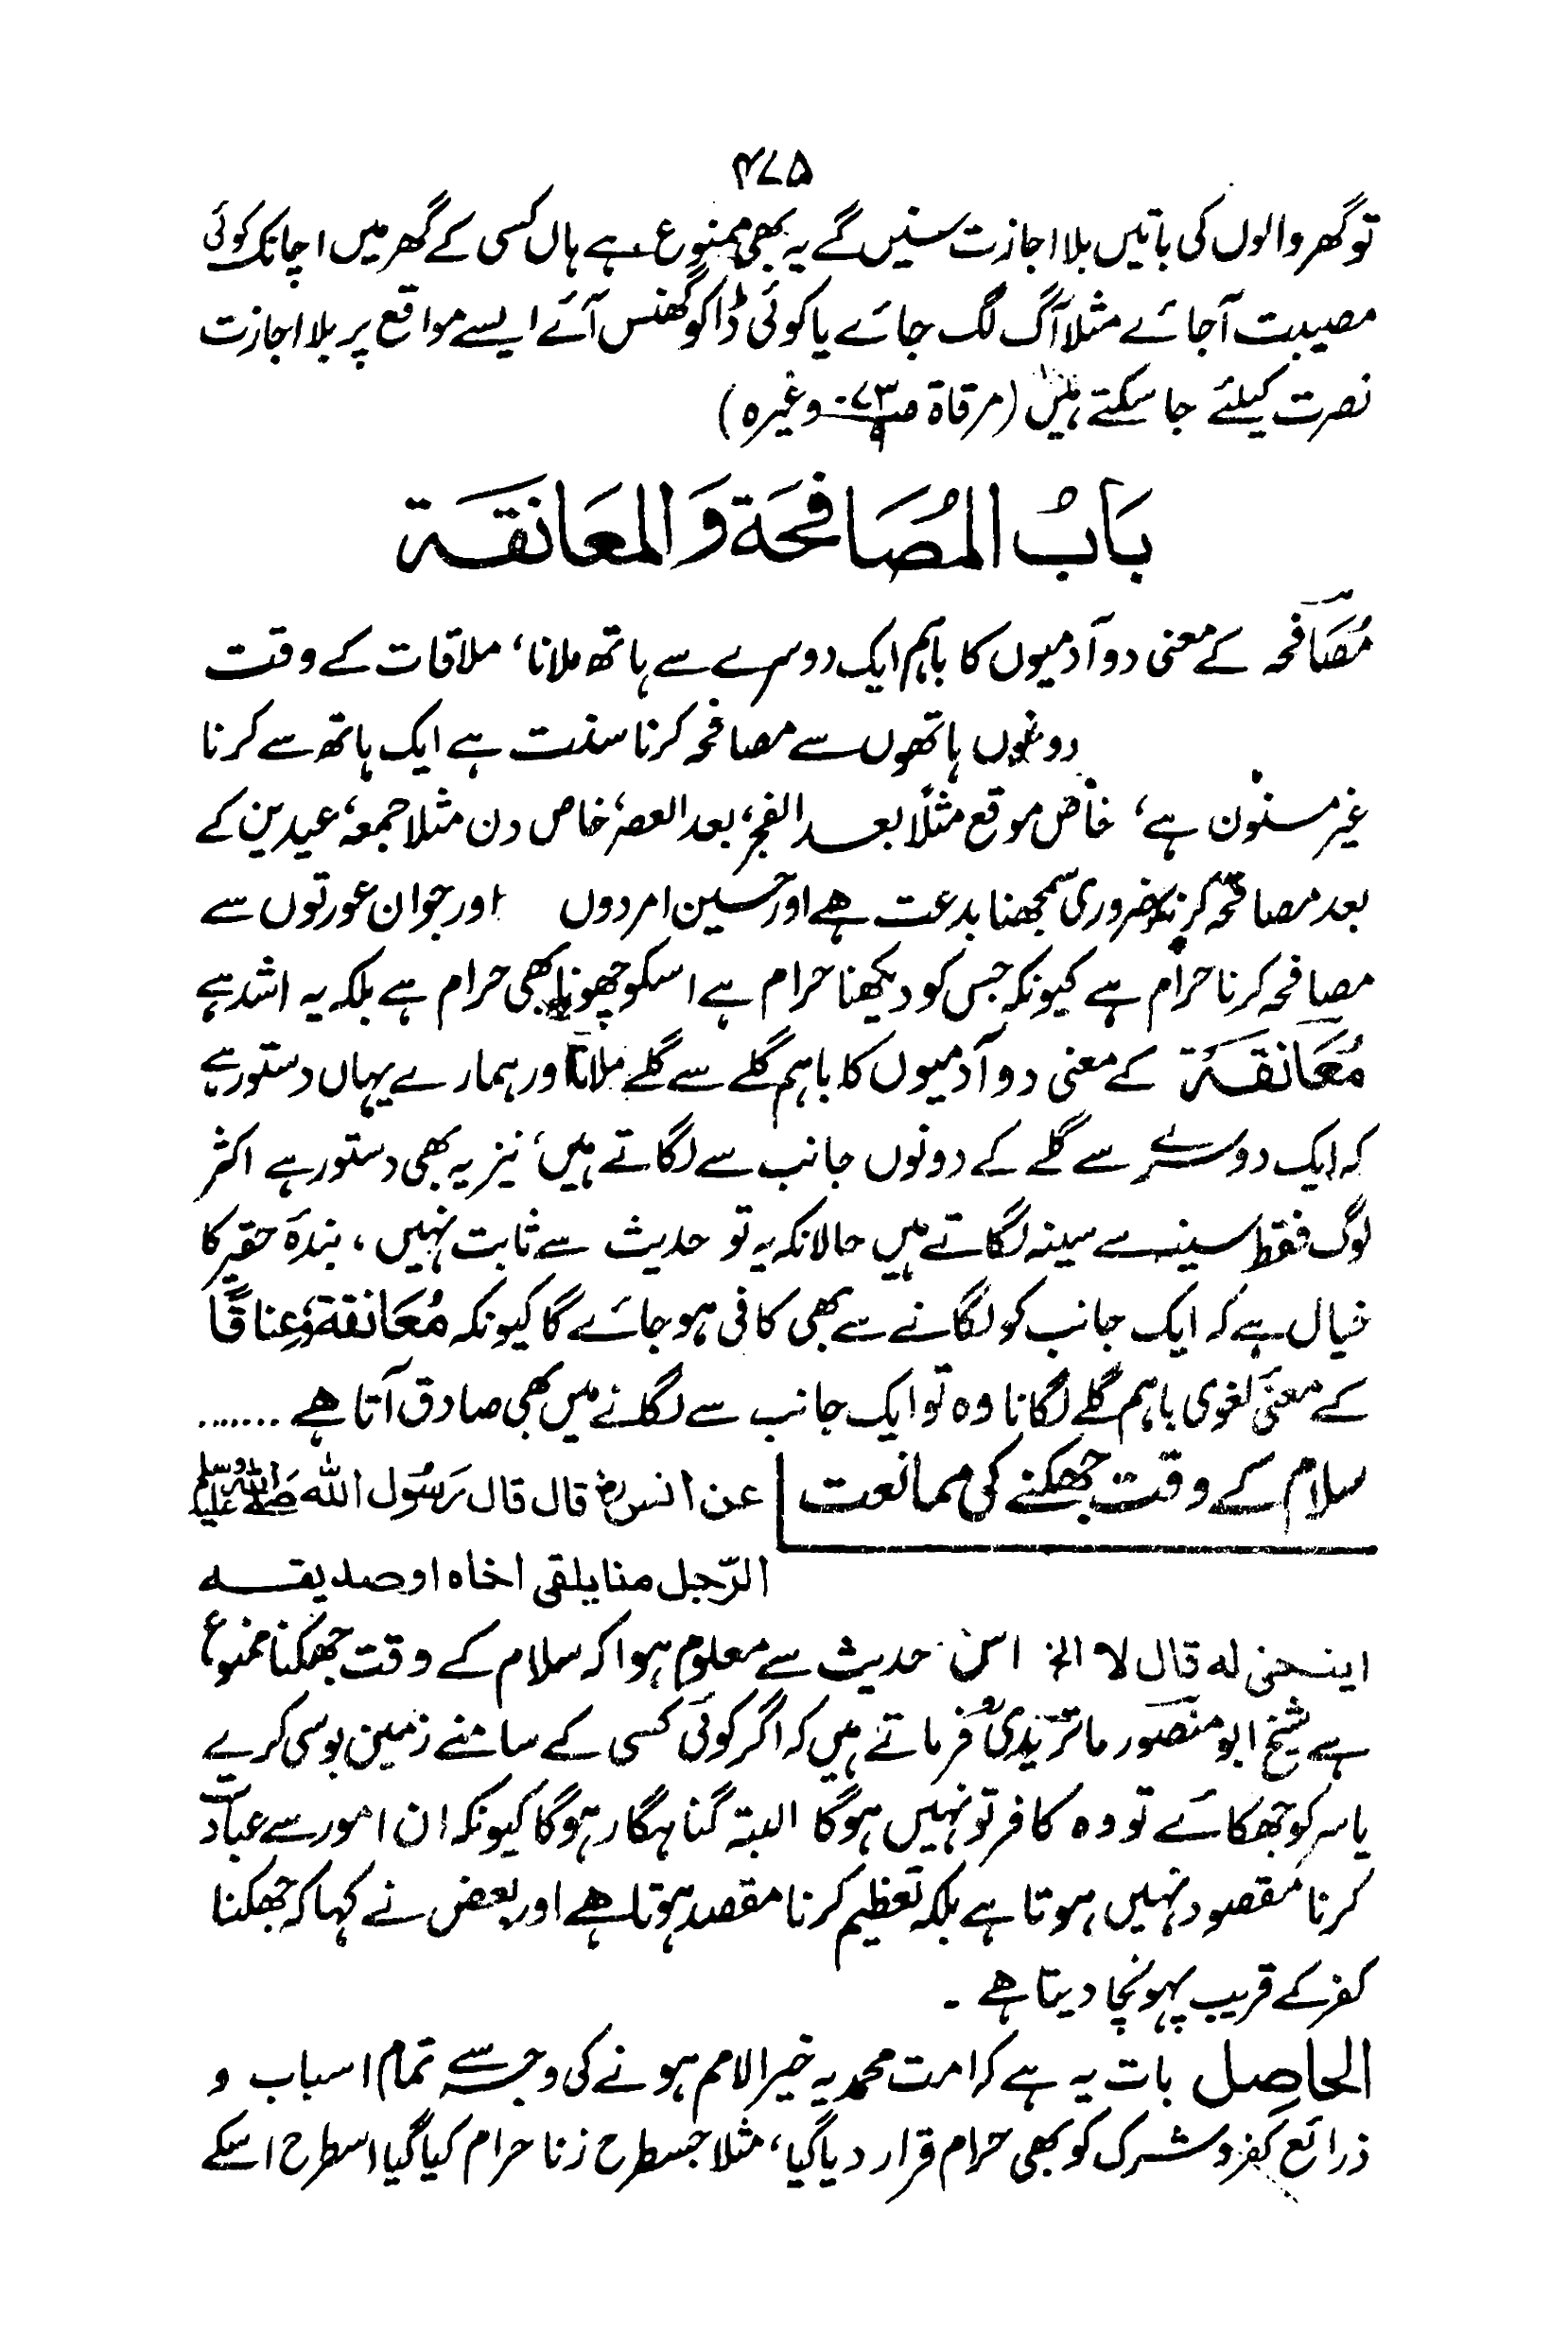 ۴۷۵
تو گھر والوں کی باتیں بلا اجازت سنیں گے یہ بھی ممنوع ہے ہاں کسی کے گھر میں اچانک کوئی
مصیبت آجائے مثلا آگ لگ جائے یا کوئی ڈاکو گھنس آئے ایسے مواقع پر بلا اجازت
نصرت کیلئے جا سکتے ہیں (مرقاۃ وغیرہ)
بَابُ المُصَافحَة وَالمعَانقَة
مُصَافحہ کے معنی دو آدمیوں کا باہم ایک دوسرے سے ہاتھ ملانا، ملاقات کے وقت
دونوں ہاتھوں سے مصافحہ کرنا سنت ہے ایک ہاتھ سے کرنا
غیر مسنون ہے، خاص موقع مثلًا بعد الفجر، بعد العصر، خاص دن مثلا جمعہ، عیدین کے
بعد مصافحہ کرنیکو ضروری سمجھنا بدعت ہے اور حسین امردوں اور جوان عورتوں سے
مصافحہ کرنا حرام ہے کیونکہ جس کو دیکھنا حرام ہے اسکو چھونا بھی حرام ہے بلکہ یہ اشد ہے
مُعَانقَة کے معنی دو آدمیوں کا باہم گلے سے گلے ملانا اور ہمارے یہاں دستور ہے
کہ ایک دوسرے سے گلے کے دونوں جانب سے لگاتے ہیں، نیز یہ بھی دستور ہے اکثر
لوگ فقط سینہ سے سینہ لگاتے ہیں حالانکہ یہ تو حدیث سے ثابت نہیں، بندۂ حقیر کا
خیال ہے کہ ایک جانب کو لگانے سے بھی کافی ہو جائے گا کیونکہ مُعَانقة وعِناقًا
کے معنی لغوی باہم گلے لگانا وہ تو ایک جانب سے لگانے میں بھی صادق آتا ہے .......
سلام کے وقت جھکنے کی ممانعت | عن انس رض قال قال رَسُول اللّٰه صلى الله عليه وسلم
الرّجل منا يلقى اخاه او صديقه
اينحنى له قال لا الخ اس حدیث سے معلوم ہوا کہ سلام کے وقت جھکنا ممنوع
ہے شیخ ابو منصور ماتریدی فرماتے ہیں کہ اگر کوئی کسی کے سامنے زمین بوسی کرے
یا سر کو جھکائے تو وہ کافر تو نہیں ہوگا البتہ گناہگار ہوگا کیونکہ ان امور سے عبادت
کرنا مقصود نہیں ہوتا ہے بلکہ تعظیم کرنا مقصد ہوتا ہے اور بعض نے کہا کہ جھکنا
کفر کے قریب پہونچا دیتا ہے ۔
الحاصِل بات یہ ہے کہ امت محمدیہ خیر الامم ہونے کی وجہ سے تمام اسباب و
ذرائع کفر و شرک کو بھی حرام قرار دیا گیا، مثلا جسطرح زنا حرام کیا گیا اسطرح اسکے